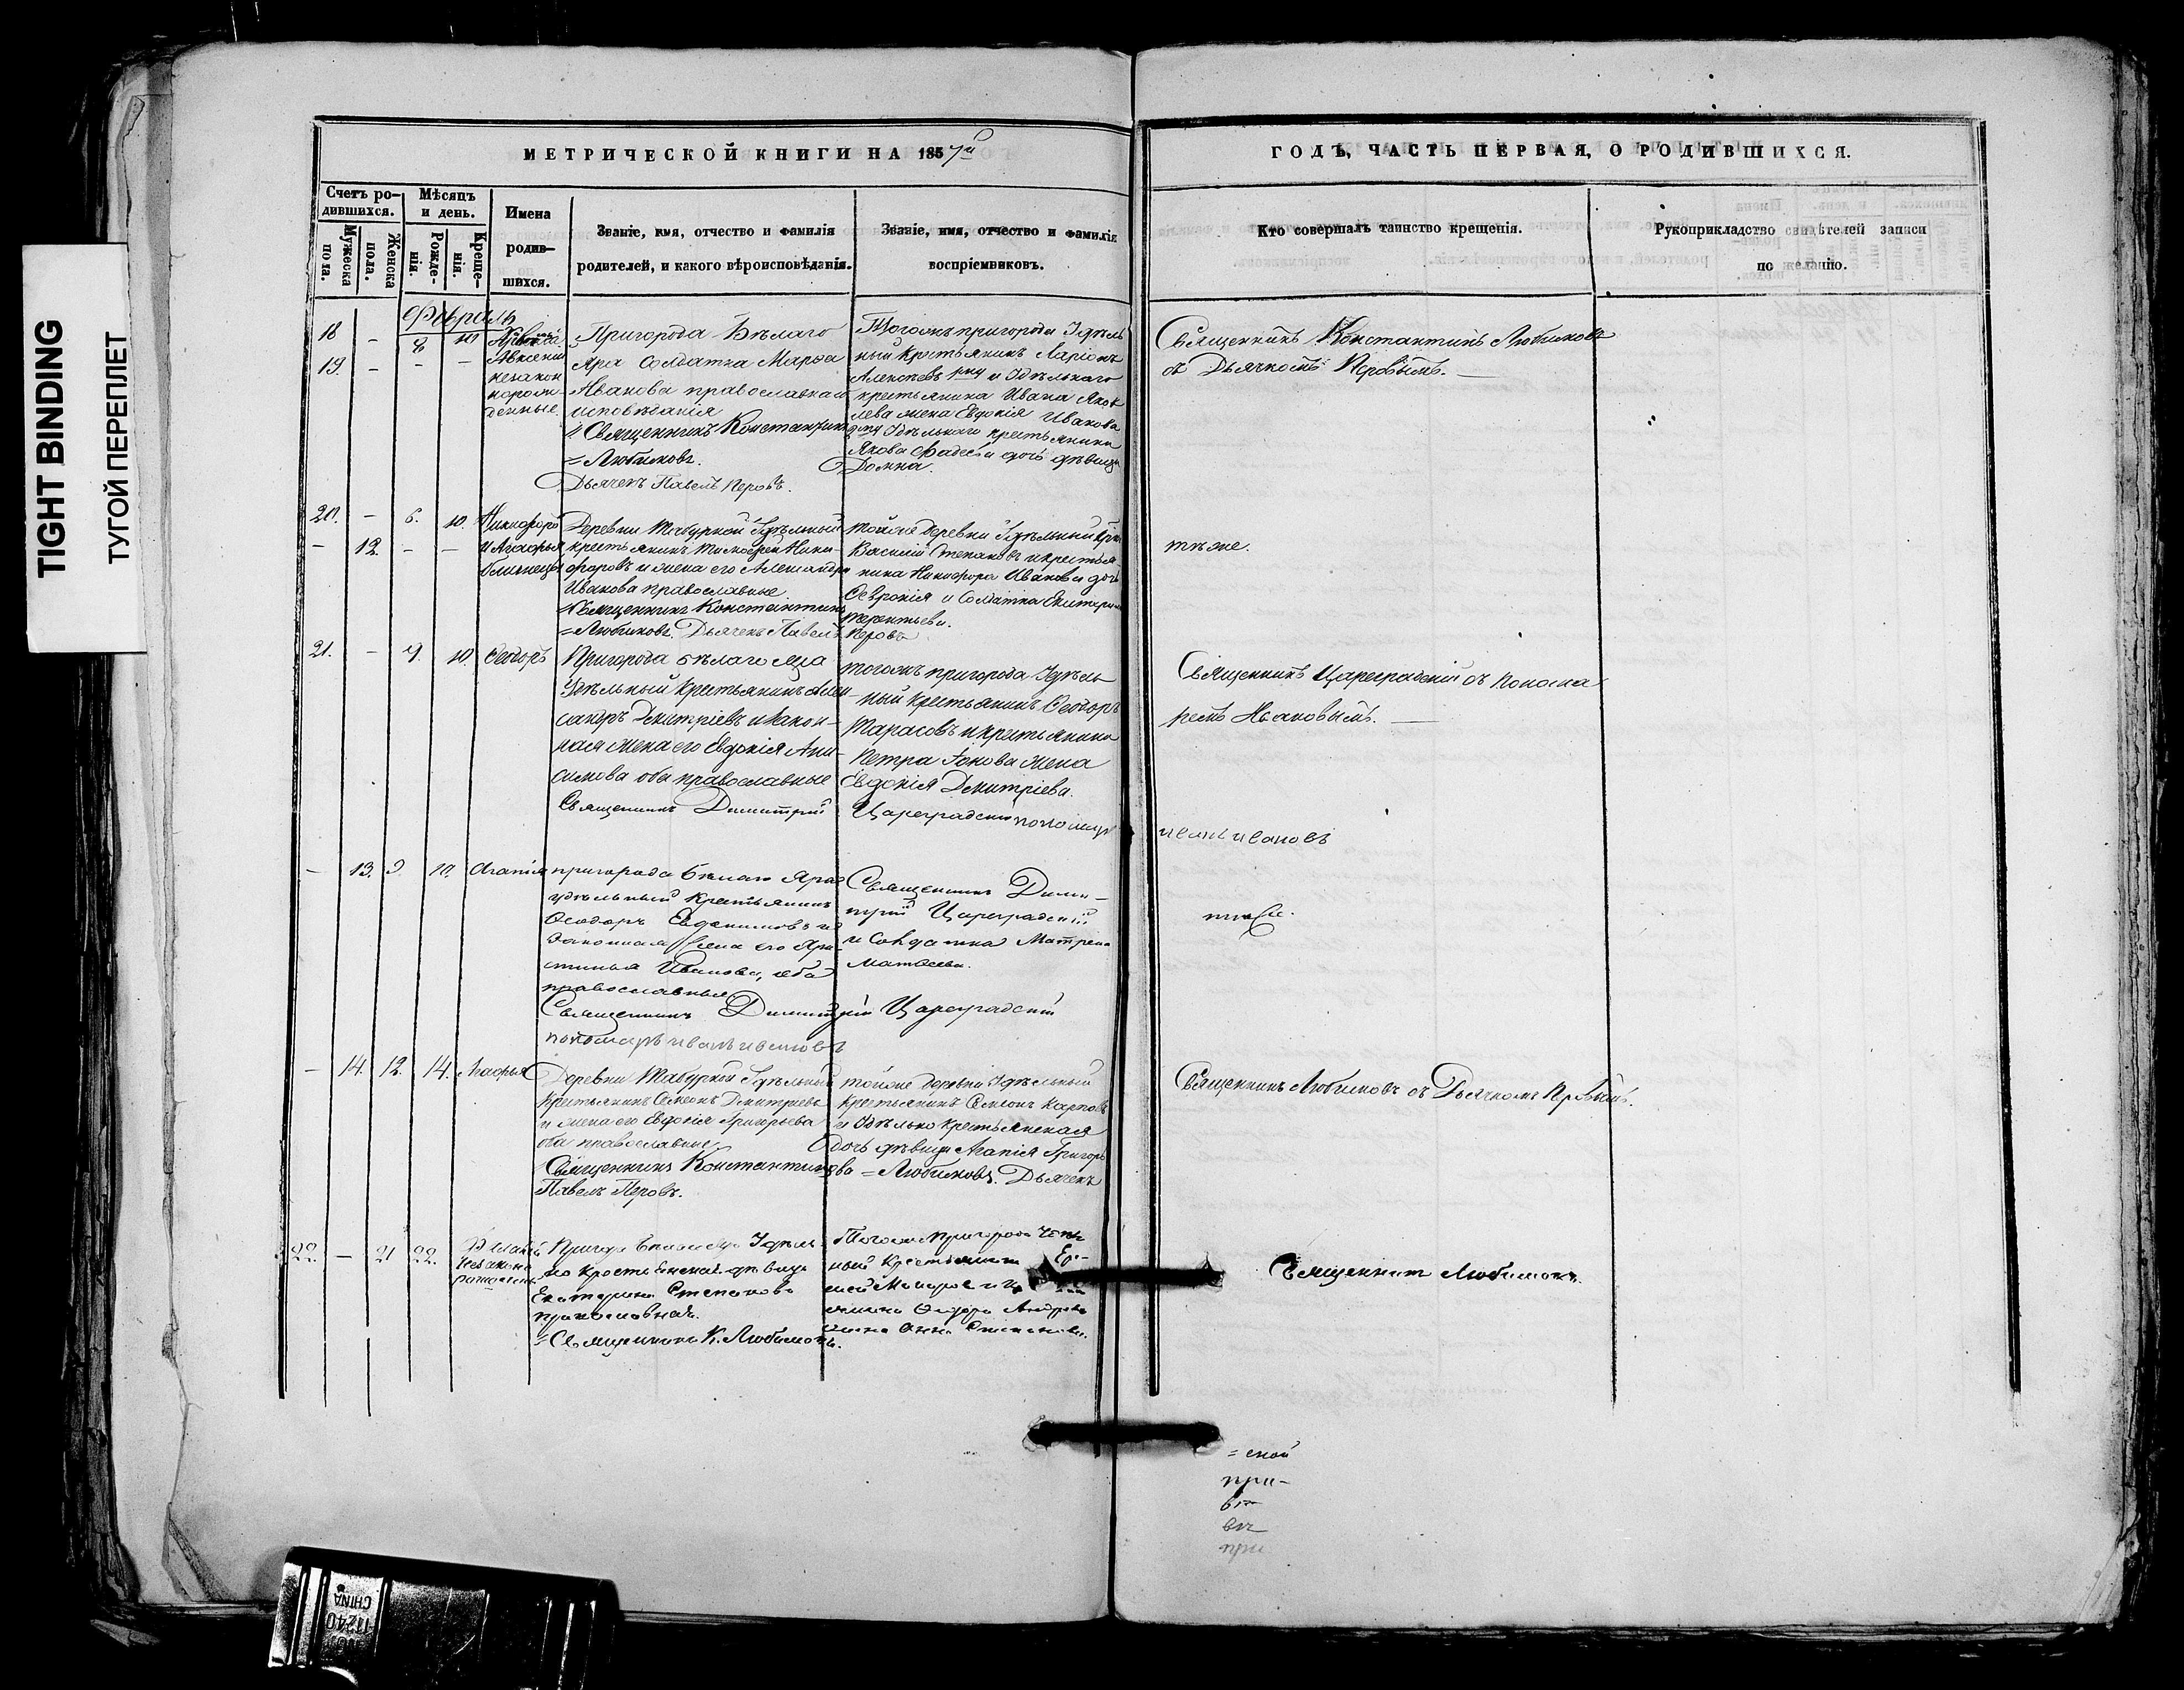 TIGHT BINDING
ТУГОЙ ПЕРЕПЛЕТ
МЕТРИЧЕСКОЙ КНИГИ НА 1857й
ГОДЪ, ЧАСТЬ ПЕРВАЯ, О РОДИВШИХСЯ.
Счетъ ро-
дившихся.
Мужеска
пола.
Женска
пола.
Мѣсяцъ
и день.
Рожде-
нія.
Креще-
нія.
Имена
родив-
шихся.
Званіе, имя, отчество и фамилія
родителей, и какого вѣроисповѣданія.
Званіе, имя, отчество и фамилія
воспріемниковъ.
Кто совершалъ таинство крещенія.
Рукоприкладство свидѣтелей записи
по желанію.
Февраль
18 - 8 10
19. - - -
Авксентій
незакон
норож-
денные.
Пригорода Бѣлаго
Яра Солдатка Марѳа
Иванова православнаго
исповѣданія
Священникъ Константинъ
=Любимовъ.
Дьячекъ Павелъ Перовъ.
Тогожъ пригорода Удѣль
ный крестьянинъ Ларіонъ
Алексѣевъ и Удѣльнаго
крестьянина Ивана Яков
лева жена Евдокія Иванова
Удѣльнаго крестьянина
Якова дочь дѣвица
Домна.
Священникъ Константинъ Любимовъ
съ Дьячкомъ Перовымъ.
20. - 6. 10. Никифоръ
- 12. - - и Агафья
близнецы
Деревни Удѣльный
крестьянинъ Тимофей Ники-
форовъ и жена его Александра
Иванова православные.
=Священникъ Константинъ
=Любимовъ. Дьячекъ Павелъ Перовъ
тойже деревни Удѣльный
Василій Степановъ и крестья-
нина Никифора Иванова дочь
Февронія и Солдатка Екатерина
Терентьева.
тѣже.
21. - 9. 10. Ѳеодоръ
Пригорода бѣлаго яра
Удѣльный крестьянинъ Але-
сандръ Дмитріевъ и закон-
ная жена его Евдокія Ани-
симова оба православные
Священникъ Димитрій Цареградскій пономарь
иванъ ивановъ
тогожъ пригорода Удѣль
-ный крестьянинъ Ѳеодоръ
Тарасовъ и крестьянина
Петра Іонова жена
Евдокія Дмитріева.
Священникъ Цареградскій съ понома
ремъ Ивановымъ.
- 13. 9. 10. Агапія
пригорода Бѣлаго Яра
удѣльный крестьянинъ
Ѳеодоръ Евдокимовъ и
законная жена его Хри-
стинья Иванова, оба
православные
Священникъ Димитрій Цареградскій
пономарь иванъ ивановъ
Священникъ Дими-
трій Цареградскій
и Солдатка Матрена
Матвеева.
тѣже.
- 14. 12. 14. Агафья
Деревни Удѣльный
крестьянинъ Семенъ Дмитріевъ
и жена его Евдокія Григорьева
оба православные
Священникъ Константинъ = Любимовъ. Дьячекъ
Павелъ Перовъ.
тойже деревни Удѣльный
крестьянинъ Семенъ Карповъ
и Удѣльно крестьянская
дочь дѣвица Агапія Григорь
ева
Священникъ Любимовъ съ Дьячкомъ Перовымъ.
22. - 21 22.
Незаконо
рожденъ
Пригор Бѣлаго Яра Удѣль
но крестьянская дѣвица
Екатерина Степанова
православная.
=Священникъ К. Любимовъ.
Тогоже пригорода Удѣль
ный крестьянинъ
Макаровъ и
Ѳедора Андреева
жена Анна Степанова.
Священникъ Любимовъ.
= ской
при-
вѣ
въ
при
CHINA
11240